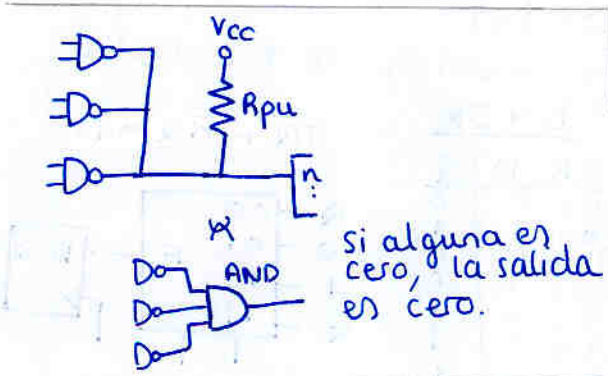 Vcc
Rpu
n
⋮
AND
si alguna es
cero, la salida
es cero.